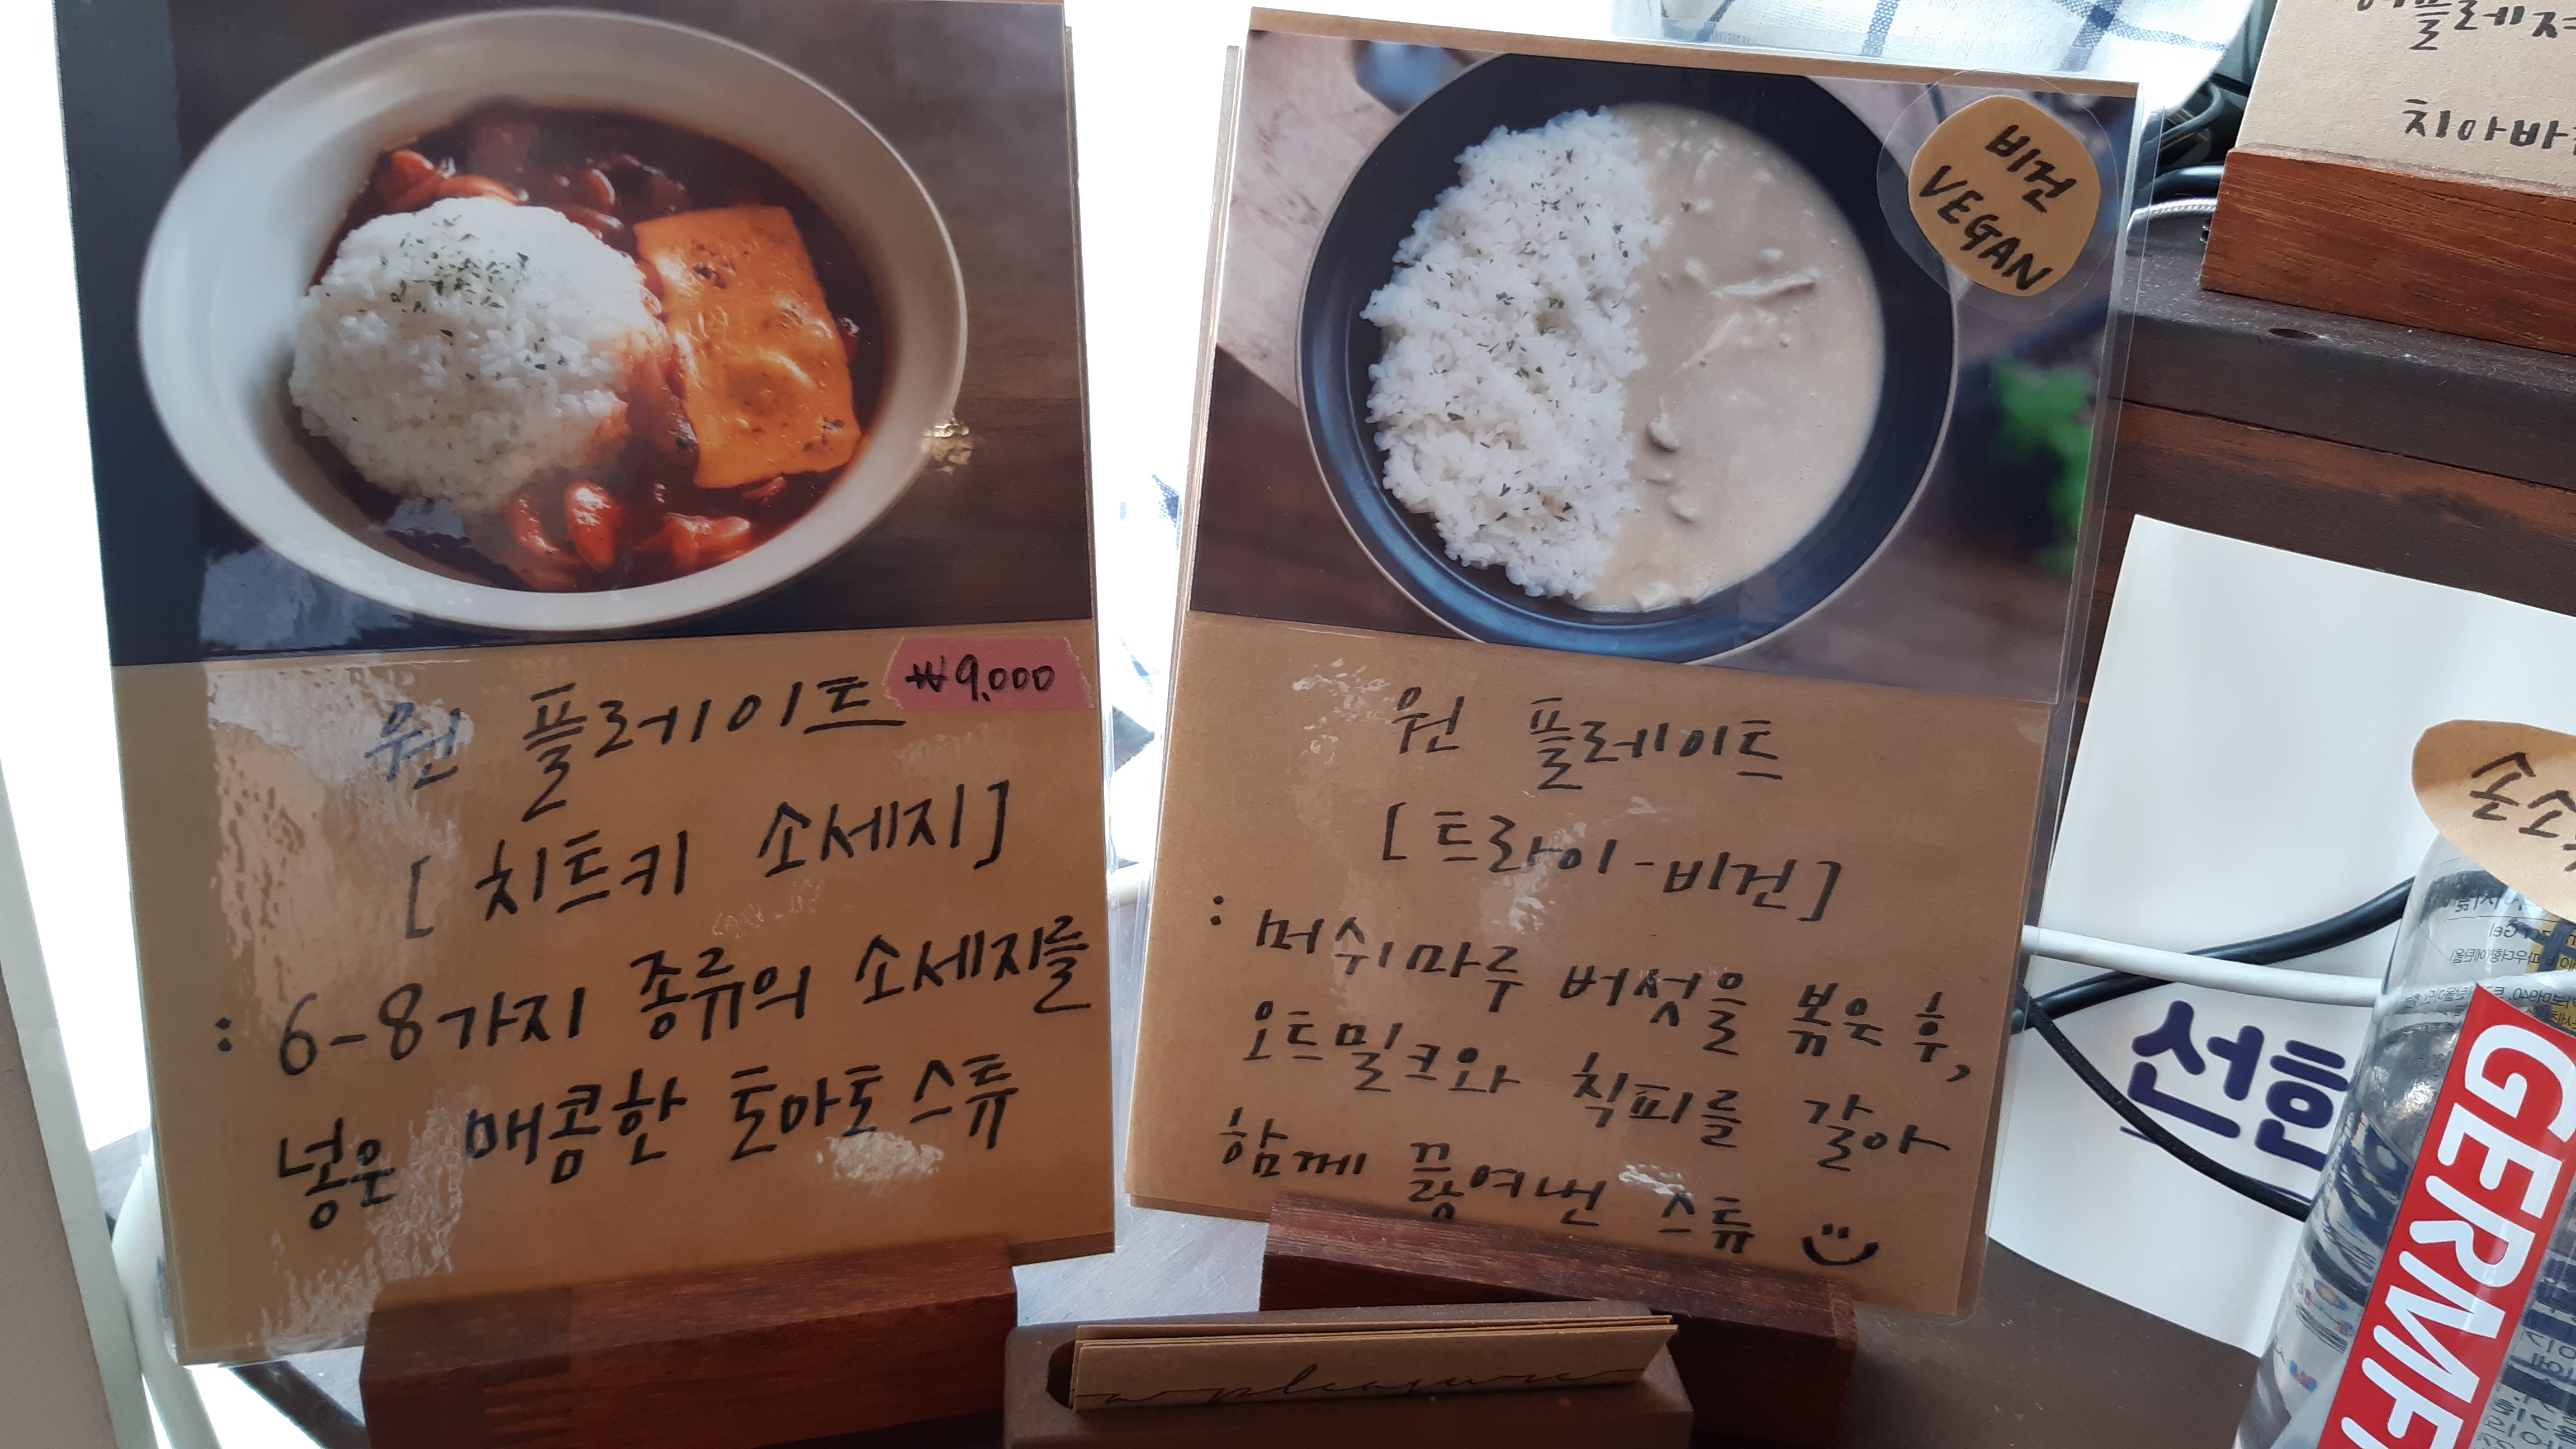 ₩9,000
원 플레이트
[치트키 소세지]
: 6-8가지 종류의 소세지를
넣은 매콤한 토마토 스튜
비건
VEGAN
원 플레이트
[트라이-비건]
: 머쉬마루 버섯을 볶은 후,
오트밀크와 칙피를 갈아
함께 끓여낸 스튜
치아바
선한
GERMF
a pleasure